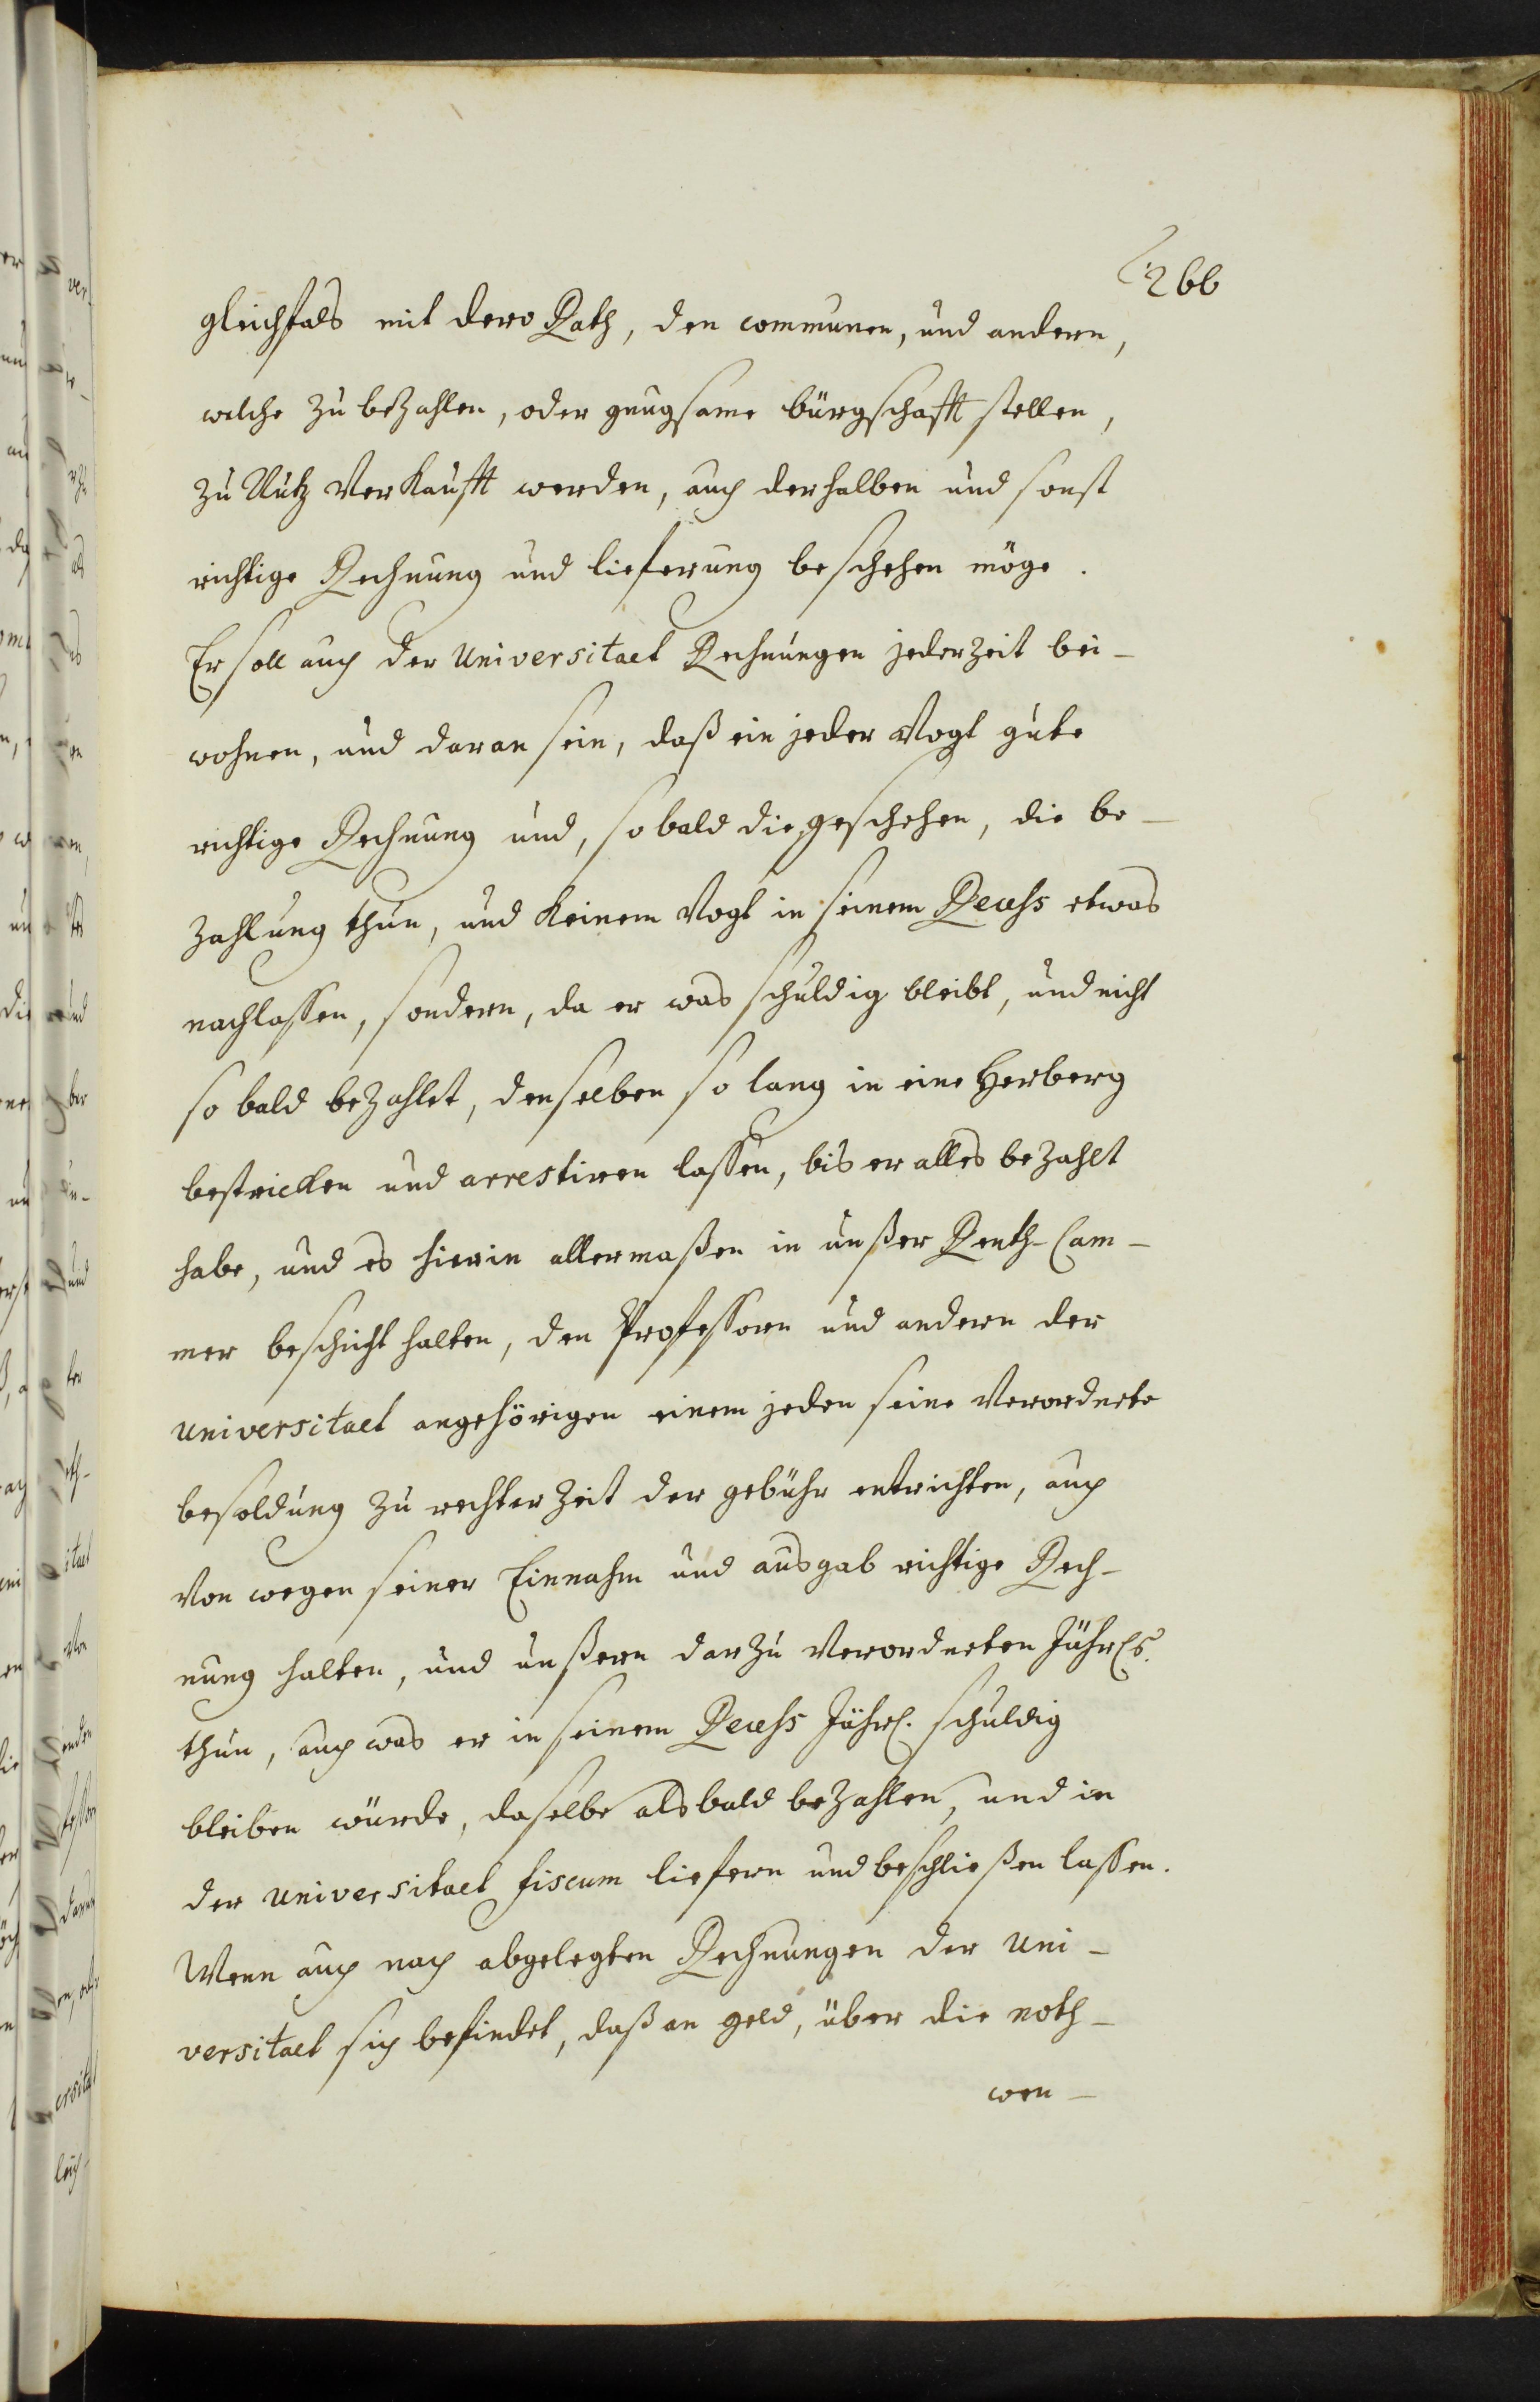 266
gleichfals mit dero Rath, den communen, und andern,
welche zu bezahlen, oder gnugsame bürgschafft stellen,
zu Nutz Verkaufft werden, auch derhalben und sonst
richtige Rechnung und lieferung beschehen möge.
Er soll auch der Universitaet Rechnungen jederzeit bei-
wohnen, und daran sein, daß ein jeder Vogt gute
richtige Rechnung und, so bald die geschehen, die be-
zahlung thun, und keinem Vogt in seinem Recess etwas
nachlassen, sondern, da er was schuldig bleibt, und nicht
so bald bezahlet, denselben so lang in eine Herberg
bestricken und arrestiren lassen, bis er alles bezahlt
habe, und es hierin allermaßen in unßer Renth-Cam-
mer beschicht halten, den Professorn und andern der
universitaet angehörigen einem jeden seine Verordnete
besoldung zu rechter Zeit der gebühr entrichten, auch
Von wegen seiner Einnahm und ausgab richtige Rech-
nung halten, und unßern darzu Verordneten
thun, auch was er in seinem Recess Jährl. schuldig
bleiben würde, daselbe alsbald bezahlen, und in
der universitaet fiscum liefern und beschließen lassen.
Wenn auch nach abgelegten Rechnungen der uni-
versitaet sich befindet, daß an geld, über die noth-
wen-